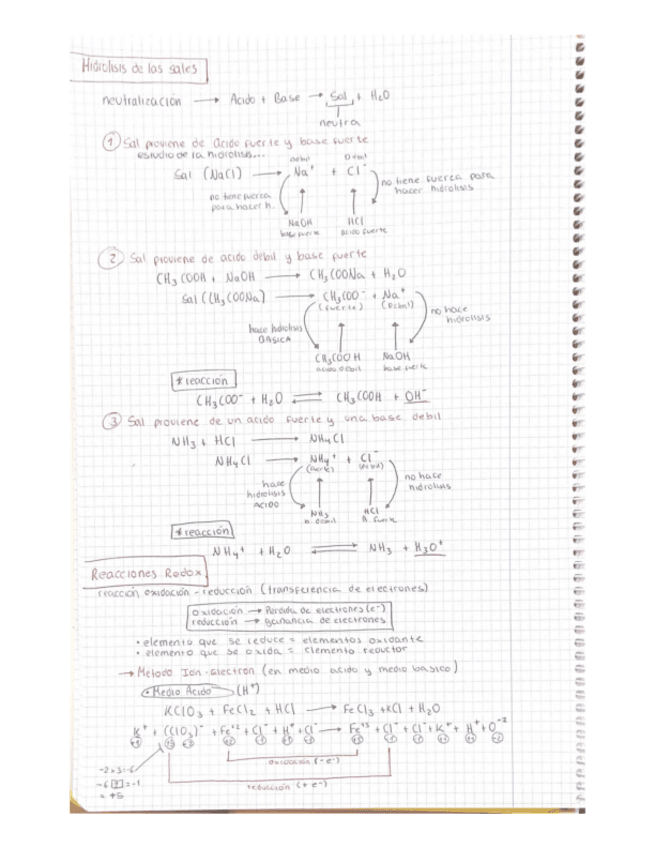 Hidrolisis de las sales
neutralización → Acido + Base → Sal + H₂O
neutra
① Sal proviene de acido fuerte y base fuerte
estudio de la hidrolisis...
Debil Debil
Sal (NaCl) → Na⁺ + Cl⁻
no tiene fuerza para hacer h.
no tiene fuerza para hacer hidrolisis
NaOH HCl
base fuerte acido fuerte
② Sal proviene de acido debil y base fuerte
CH₃COOH + NaOH → CH₃COONa + H₂O
Sal (CH₃COONa) → CH₃COO⁻ + Na⁺
(fuerte) (Debil)
hace hidrolisis BASICA
no hace hidrolisis
CH₃COOH NaOH
acido debil base fuerte
* reacción
CH₃COO⁻ + H₂O ⇌ CH₃COOH + OH⁻
③ Sal proviene de un acido fuerte y una base debil
NH₃ + HCl → NH₄Cl
NH₄Cl → NH₄⁺ + Cl⁻
(fuerte) (Debil)
hace hidrolisis ACIDO
no hace hidrolisis
NH₃ HCl
b. debil A. fuerte
* reacción
NH₄⁺ + H₂O ⇌ NH₃ + H₃O⁺
Reacciones Redox
reacción oxidación - reducción (transferencia de electrones)
oxidación → Perdida de electrones (e⁻)
reducción → ganancia de electrones
• elemento que se reduce = elementos oxidante
• elemento que se oxida = elemento reductor
→ Metodo Ion-Electron (en medio acido y medio basico)
• Medio Acido (H⁺)
KClO₃ + FeCl₂ + HCl → FeCl₃ + KCl + H₂O
K⁺ + (ClO₃)⁻ + Fe⁺² + Cl⁻ + H⁺ + Cl⁻ → Fe⁺³ + Cl⁻ + Cl⁻ + K⁺ + H⁺ + O⁻²
oxidación (-e⁻)
-2×3=-6
-6 [?] = -1
= +5
reducción (+e⁻)